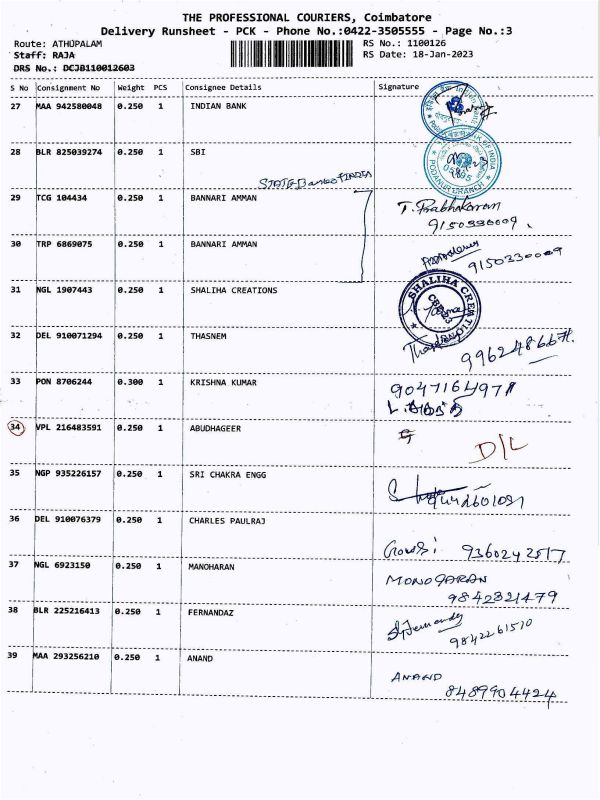 THE PROFESSIONAL COURIERS, Coimbatore
Delivery Runsheet - PCK - Phone No.:0422-3505555 - Page No.:3
Route: ATHUPALAM RS No.: 1100126
Staff: RAJA RS Date: 18-Jan-2023
DRS No.: DCJB110012603
S No Consignment No Weight PCS Consignee Details Signature
27 MAA 942580048 0.250 1 INDIAN BANK
28 BLR 825039274 0.250 1 SBI
PODANUR BRANCH
29 TCG 104434 0.250 1 BANNARI AMMAN T. Prabhakaran
9150330009
30 TRP 6869075 0.250 1 BANNARI AMMAN
9150330009
31 NGL 1907443 0.250 1 SHALIHA CREATIONS
SHALIHA CREATION
32 DEL 910071294 0.250 1 THASNEM
33 PON 8706244 0.300 1 KRISHNA KUMAR
34 VPL 216483591 0.250 1 ABUDHAGEER D/L
35 NGP 935226157 0.250 1 SRI CHAKRA ENGG
36 DEL 910076379 0.250 1 CHARLES PAULRAJ
37 NGL 6923150 0.250 1 MANOHARAN MONOGARAN
9842321479
38 BLR 225216413 0.250 1 FERNANDAZ
9842261510
39 MAA 293256210 0.250 1 ANAND ANAND
8489904424